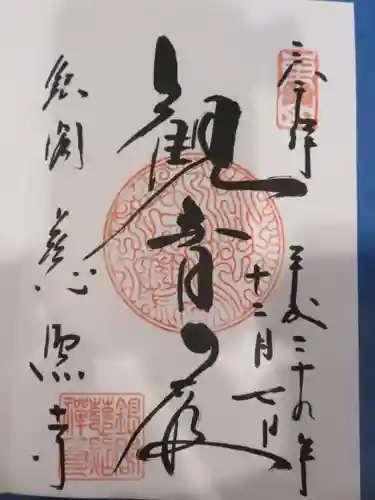 奉拝
平成二十九年
十二月七日
観音殿
銀閣 慈照寺